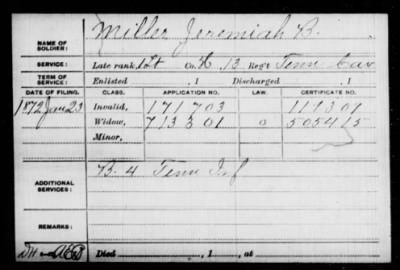 Miller Jeremiah B.
NAME OF SOLDIER:
SERVICE: Late rank, Co. 13 Reg't Tenn Cav
TERM OF SERVICE: Enlisted , 1 Discharged , 1
DATE OF FILING. CLASS. APPLICATION NO. LAW. CERTIFICATE NO.
1872 Jan 23 Invalid, 171703 117301
Widow, 713301 0 505415
Minor,
ADDITIONAL SERVICES: B. 4 Tenn Inf
REMARKS:
Died , 1 , at